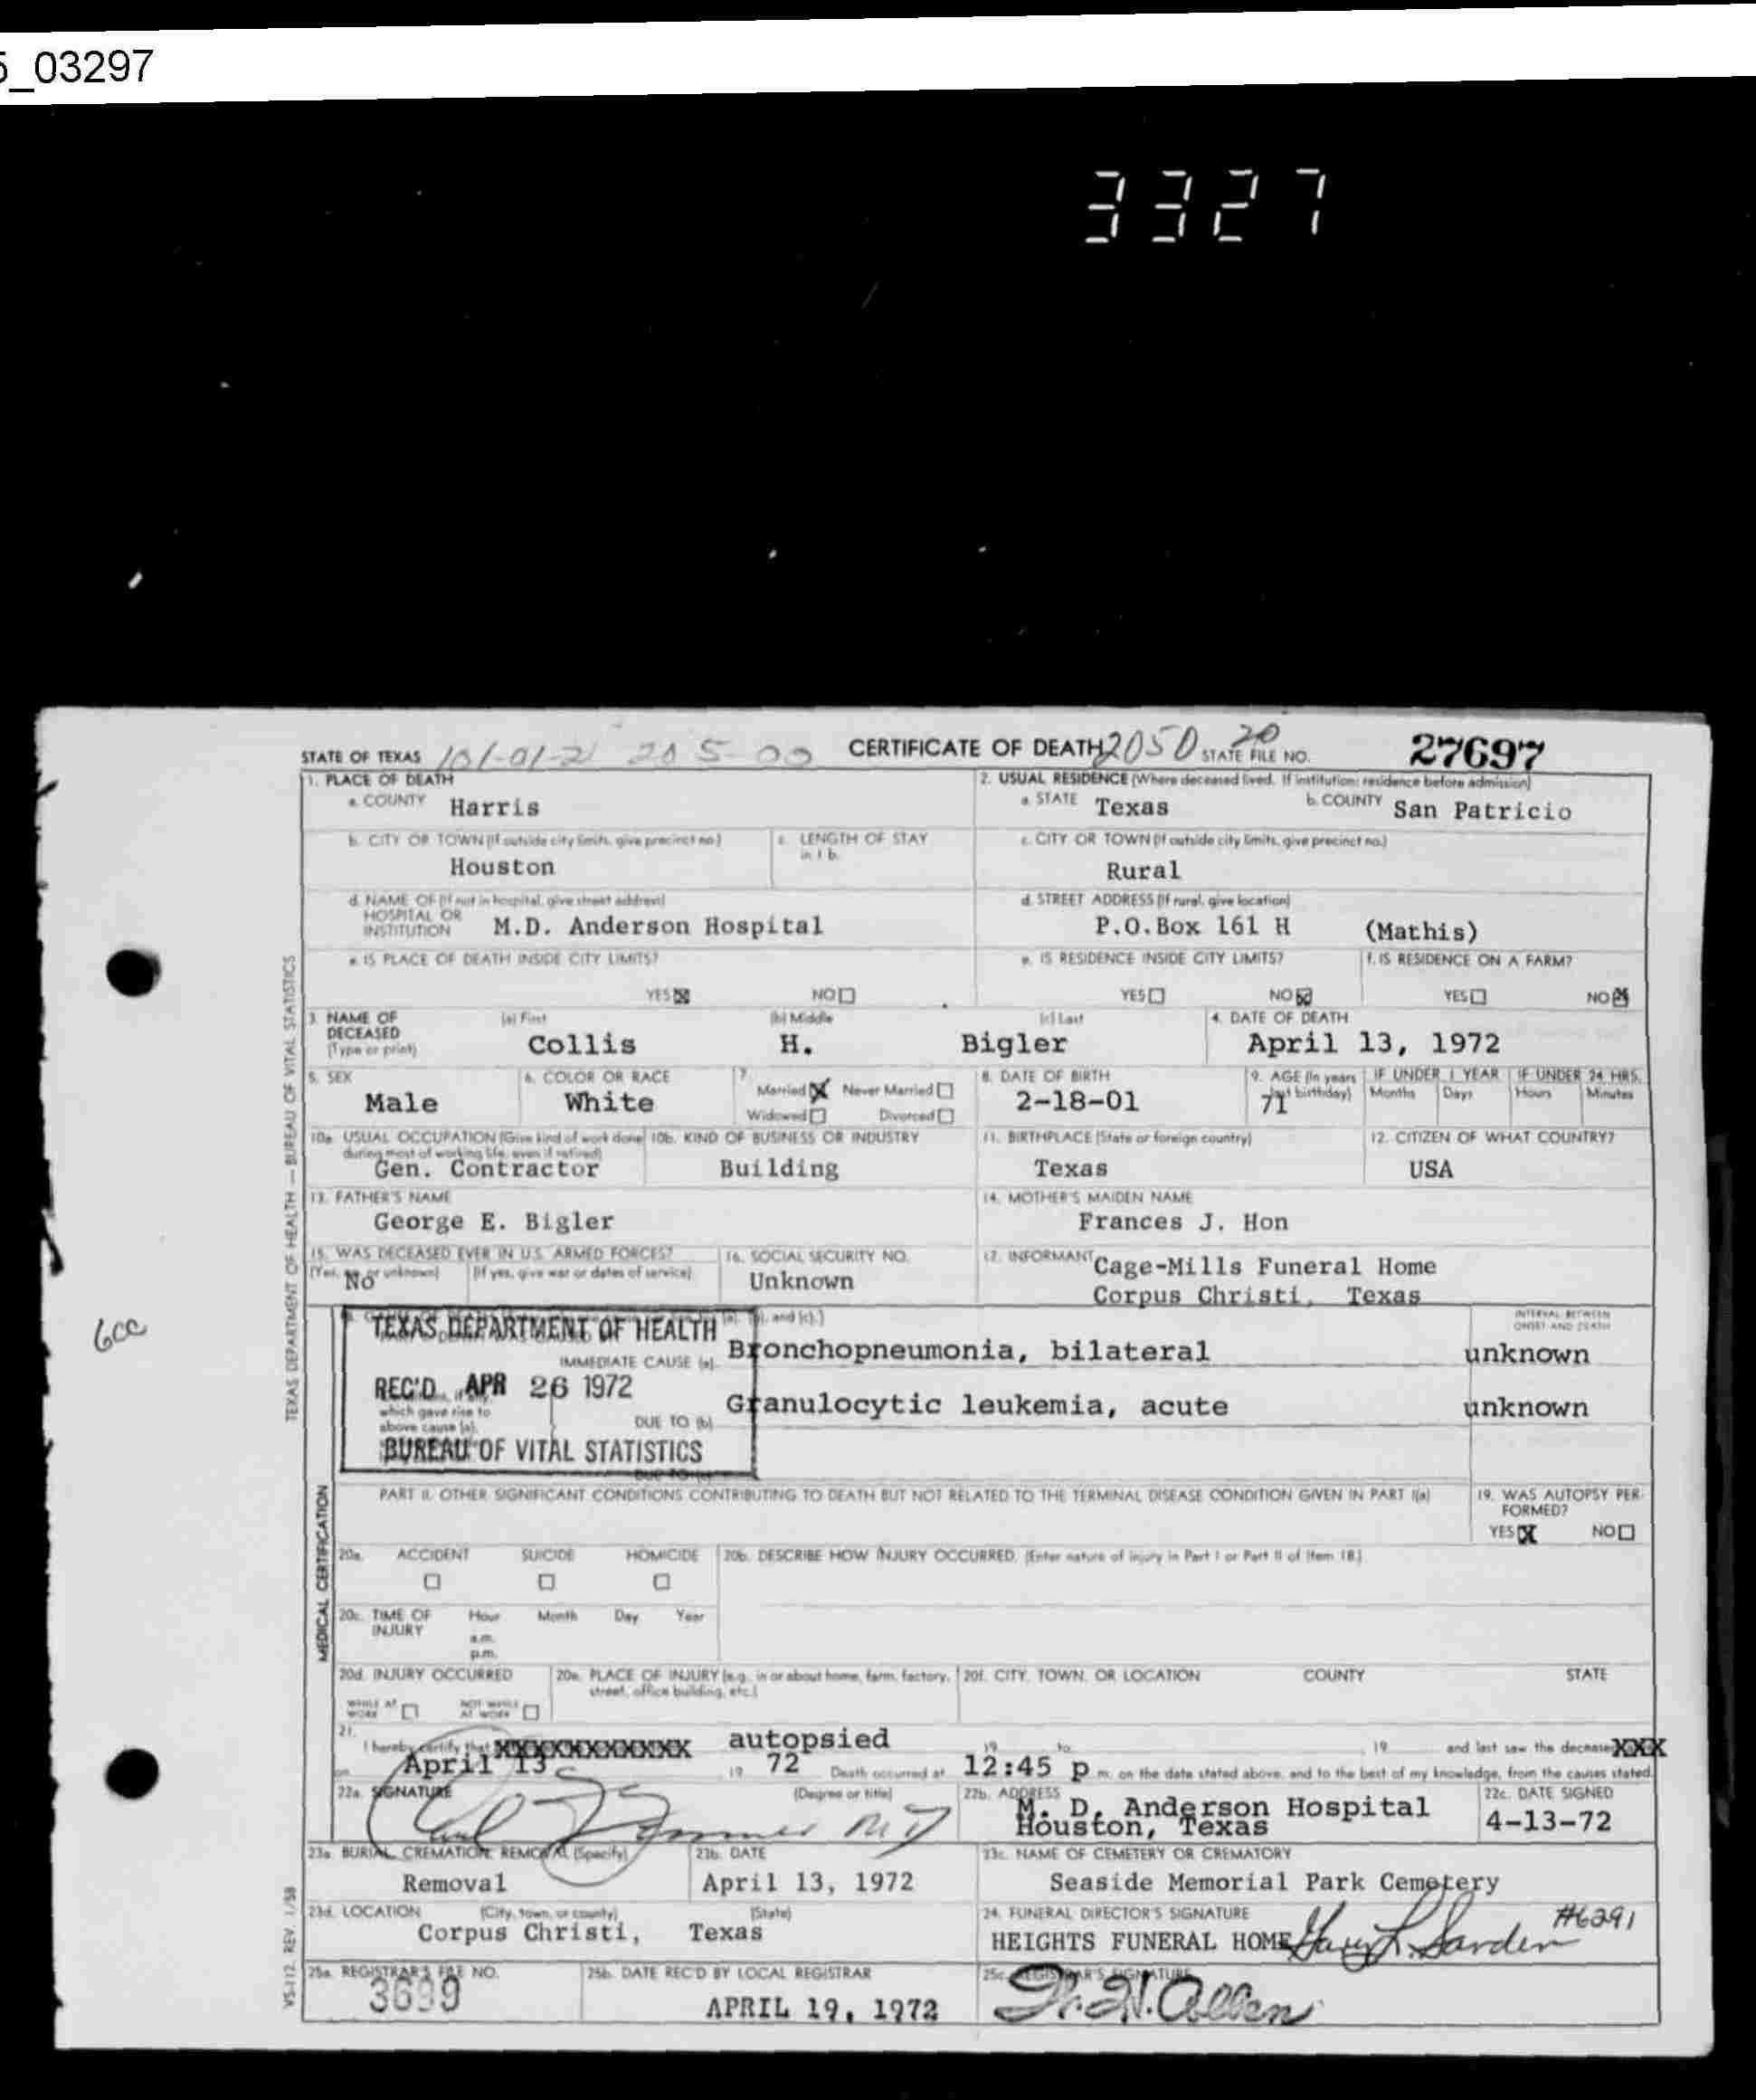 5_03297
3327
STATE OF TEXAS 101-01-21 205-00 CERTIFICATE OF DEATH 2050 20 STATE FILE NO. 27697
1. PLACE OF DEATH
2. USUAL RESIDENCE (Where deceased lived. If institution: residence before admission)
a. COUNTY Harris
a. STATE Texas b. COUNTY San Patricio
b. CITY OR TOWN (If outside city limits, give precinct no.) c. LENGTH OF STAY in 1 b.
c. CITY OR TOWN (If outside city limits, give precinct no.)
Houston
Rural
d. NAME OF (If not in hospital, give street address)
HOSPITAL OR
INSTITUTION M.D. Anderson Hospital
d. STREET ADDRESS (If rural, give location)
P.O.Box 161 H (Mathis)
e. IS PLACE OF DEATH INSIDE CITY LIMITS?
e. IS RESIDENCE INSIDE CITY LIMITS? f. IS RESIDENCE ON A FARM?
YES NO
YES NO YES NO
3. NAME OF DECEASED (Type or print) (a) First (b) Middle (c) Last 4. DATE OF DEATH
Collis H. Bigler April 13, 1972
5. SEX 6. COLOR OR RACE 7. Married Never Married 8. DATE OF BIRTH 9. AGE (In years last birthday) IF UNDER 1 YEAR IF UNDER 24 HRS.
Months Days Hours Minutes
Male White Widowed Divorced 2-18-01 71
10a. USUAL OCCUPATION (Give kind of work done during most of working life, even if retired) 10b. KIND OF BUSINESS OR INDUSTRY 11. BIRTHPLACE (State or foreign country) 12. CITIZEN OF WHAT COUNTRY?
Gen. Contractor Building Texas USA
13. FATHER'S NAME 14. MOTHER'S MAIDEN NAME
George E. Bigler Frances J. Hon
15. WAS DECEASED EVER IN U.S. ARMED FORCES? 16. SOCIAL SECURITY NO. 17. INFORMANT Cage-Mills Funeral Home
(Yes, no, or unknown) (If yes, give war or dates of service)
No Unknown Corpus Christi, Texas
TEXAS DEPARTMENT OF HEALTH
INTERVAL BETWEEN ONSET AND DEATH
IMMEDIATE CAUSE (a) Bronchopneumonia, bilateral unknown
REC'D APR 26 1972
which gave rise to
above cause (a),
DUE TO (b) Granulocytic leukemia, acute unknown
BUREAU OF VITAL STATISTICS
PART II. OTHER SIGNIFICANT CONDITIONS CONTRIBUTING TO DEATH BUT NOT RELATED TO THE TERMINAL DISEASE CONDITION GIVEN IN PART I(a) 19. WAS AUTOPSY PERFORMED?
YES NO
20a. ACCIDENT SUICIDE HOMICIDE 20b. DESCRIBE HOW INJURY OCCURRED. (Enter nature of injury in Part I or Part II of Item 18.)
20c. TIME OF INJURY Hour Month Day Year
a.m.
p.m.
20d. INJURY OCCURRED 20e. PLACE OF INJURY (e.g., in or about home, farm, factory, street, office building, etc.) 20f. CITY, TOWN, OR LOCATION COUNTY STATE
WHILE AT WORK NOT WHILE AT WORK
21. I hereby certify that XXXXXXXXXXXXX autopsied 19 to 19 and last saw the deceased XXX
on April 13 19 72 Death occurred at 12:45 p m. on the date stated above, and to the best of my knowledge, from the causes stated.
22a. SIGNATURE (Degree or title) MD 22b. ADDRESS 22c. DATE SIGNED
M. D. Anderson Hospital
Houston, Texas 4-13-72
23a. BURIAL, CREMATION, REMOVAL (Specify) 23b. DATE 23c. NAME OF CEMETERY OR CREMATORY
Removal April 13, 1972 Seaside Memorial Park Cemetery
23d. LOCATION (City, town, or county) (State) 24. FUNERAL DIRECTOR'S SIGNATURE
Corpus Christi, Texas HEIGHTS FUNERAL HOME #6291
25a. REGISTRAR'S FILE NO. 25b. DATE REC'D BY LOCAL REGISTRAR 25c. REGISTRAR'S SIGNATURE
3699 APRIL 19, 1972
TEXAS DEPARTMENT OF HEALTH — BUREAU OF VITAL STATISTICS
MEDICAL CERTIFICATION
VS-112 REV. 1/58
6cc